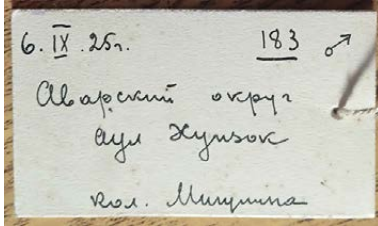 6. IX. 25г. 183 ♂
Аварский округ
аул Хунзок
кол. Мишулина